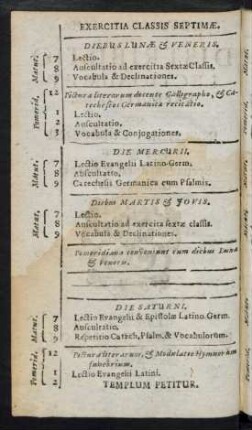 EXERCITIA CLASSIS SEPTIMÆ.
DIEBUS LUNÆ & VENERIS.
Matut. 7 Lectio.
8 Auscultatio ad exercitia Sextæ Classis.
9 Vocabula & Declinationes.
Pomerid. 12 Pictura literarum docente Calligrapho, & Ca-
techeseos Germanicæ recitatio.
1 Lectio.
2 Auscultatio.
3 Vocabula & Conjugationes.
DIE MERCURII.
Matut. 7 Lectio Evangelii Latino-Germ.
8 Abscultatio.
9 Catechesis Germanica cum Psalmis.
Diebus MARTIS & JOVIS.
Matut. 7 Lectio.
8 Auscultatio ad exercitia sextæ classis.
9 Vocabula & Declinationes.
Pomeridiana conveniunt cum diebus Lunæ
& Veneris.
DIE SATURNI.
Matut. 7 Lectio Evangelii & Epistolæ Latino Germ.
8 Auscultatio.
9 Repetitio Catech. Psalm. & Vocabulorum.
Pomerid. 12 Pictura literarum, & Modulatio Hymnorum
1 Lectio Evangelii Latini.
2 TEMPLUM PETITUR.